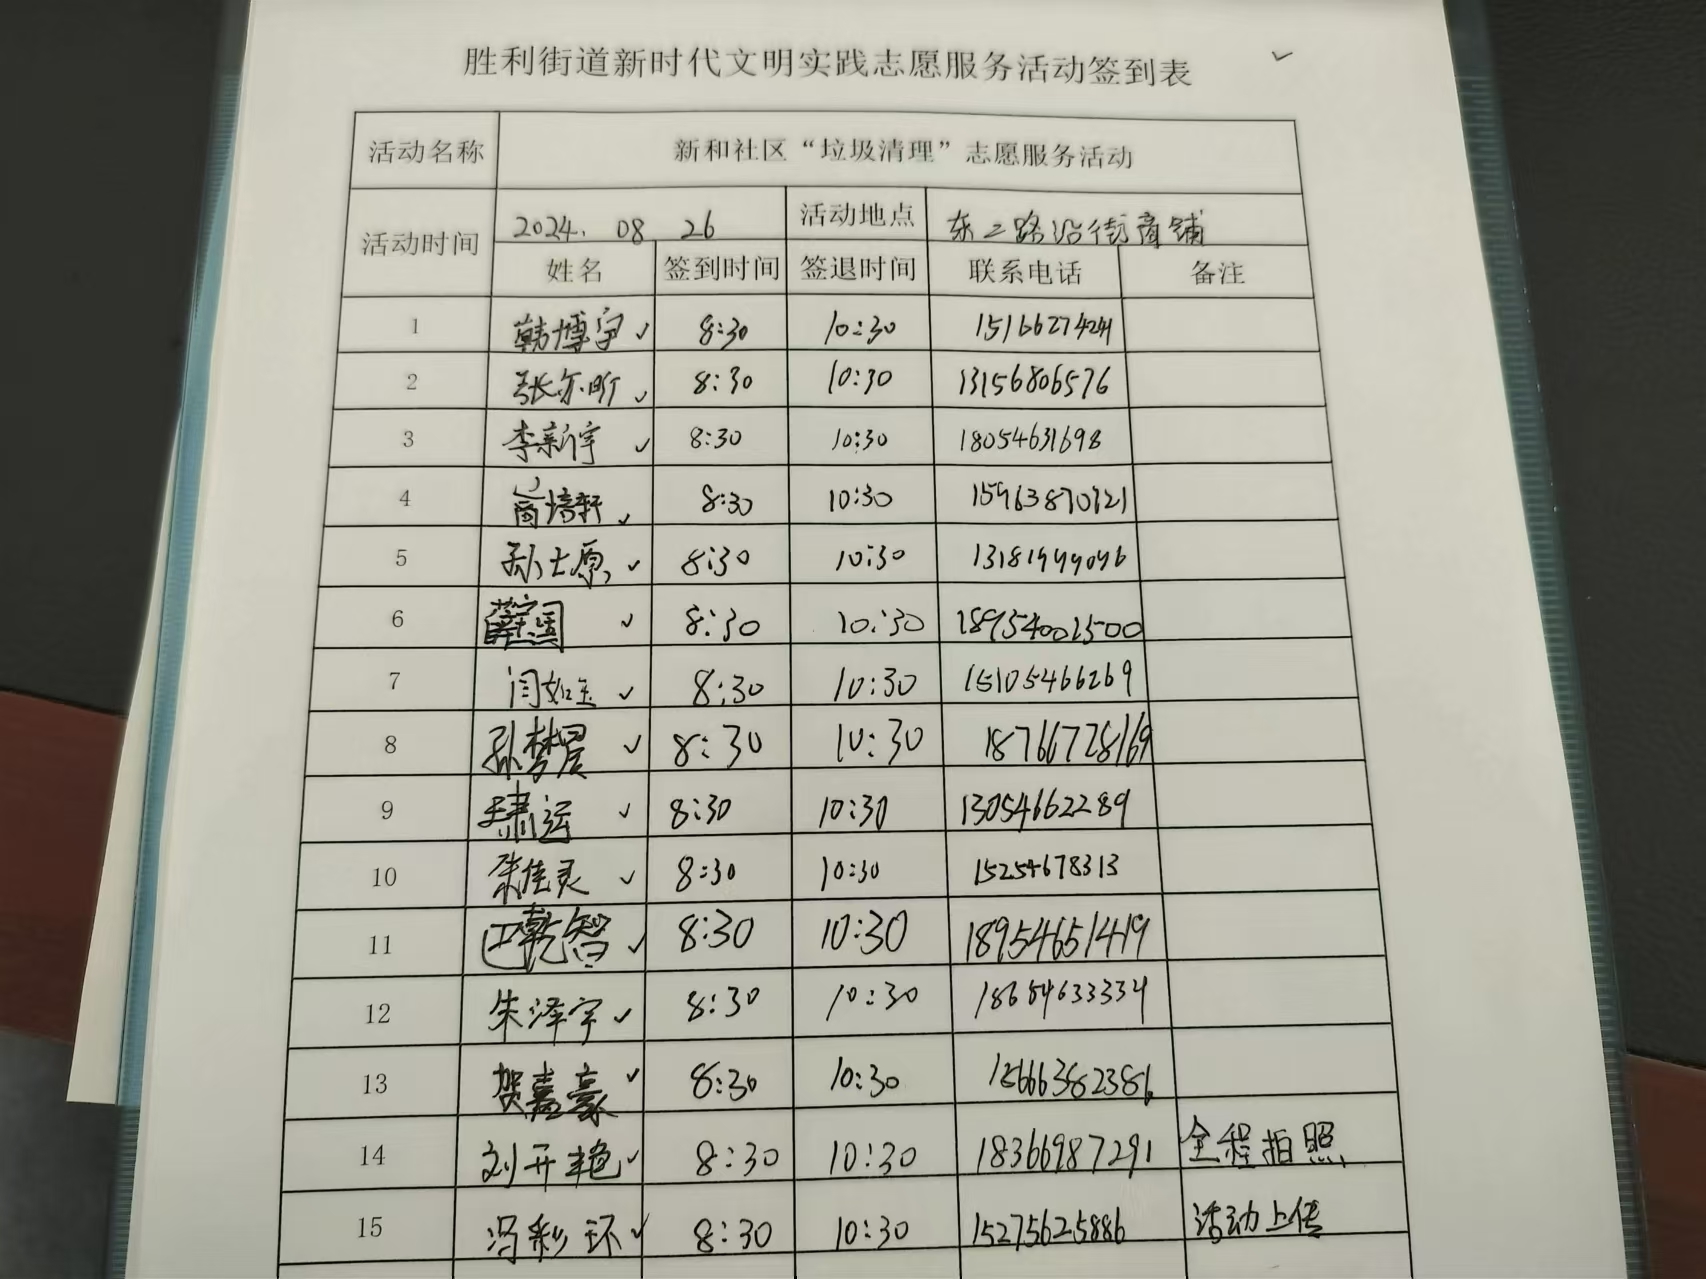 胜利街道新时代文明实践志愿服务活动签到表
活动名称 新和社区“垃圾清理”志愿服务活动
活动时间 2024.08 26 活动地点 东二路沿街商铺
姓名 签到时间 签退时间 联系电话 备注
1 韩博宇 8:30 10:30 15166274241
2 张尔昕 8:30 10:30 13156806576
3 李新宇 8:30 10:30 18054631698
4 商培轩 8:30 10:30 15963870721
5 孙士原 8:30 10:30 13181999096
6 8:30 10:30 18954001500
7 闫如玉 8:30 10:30 15105466269
8 孙梦晨 8:30 10:30 18766728169
9 8:30 10:30 13054662289
10 朱佳灵 8:30 10:30 15254678313
11 巴乾智 8:30 10:30 18954651419
12 朱泽宇 8:30 10:30 18654633334
13 贺嘉豪 8:30 10:30 15666382386
14 刘开艳 8:30 10:30 18366987291 全程拍照
15 冯彩环 8:30 10:30 15275625886 活动上传